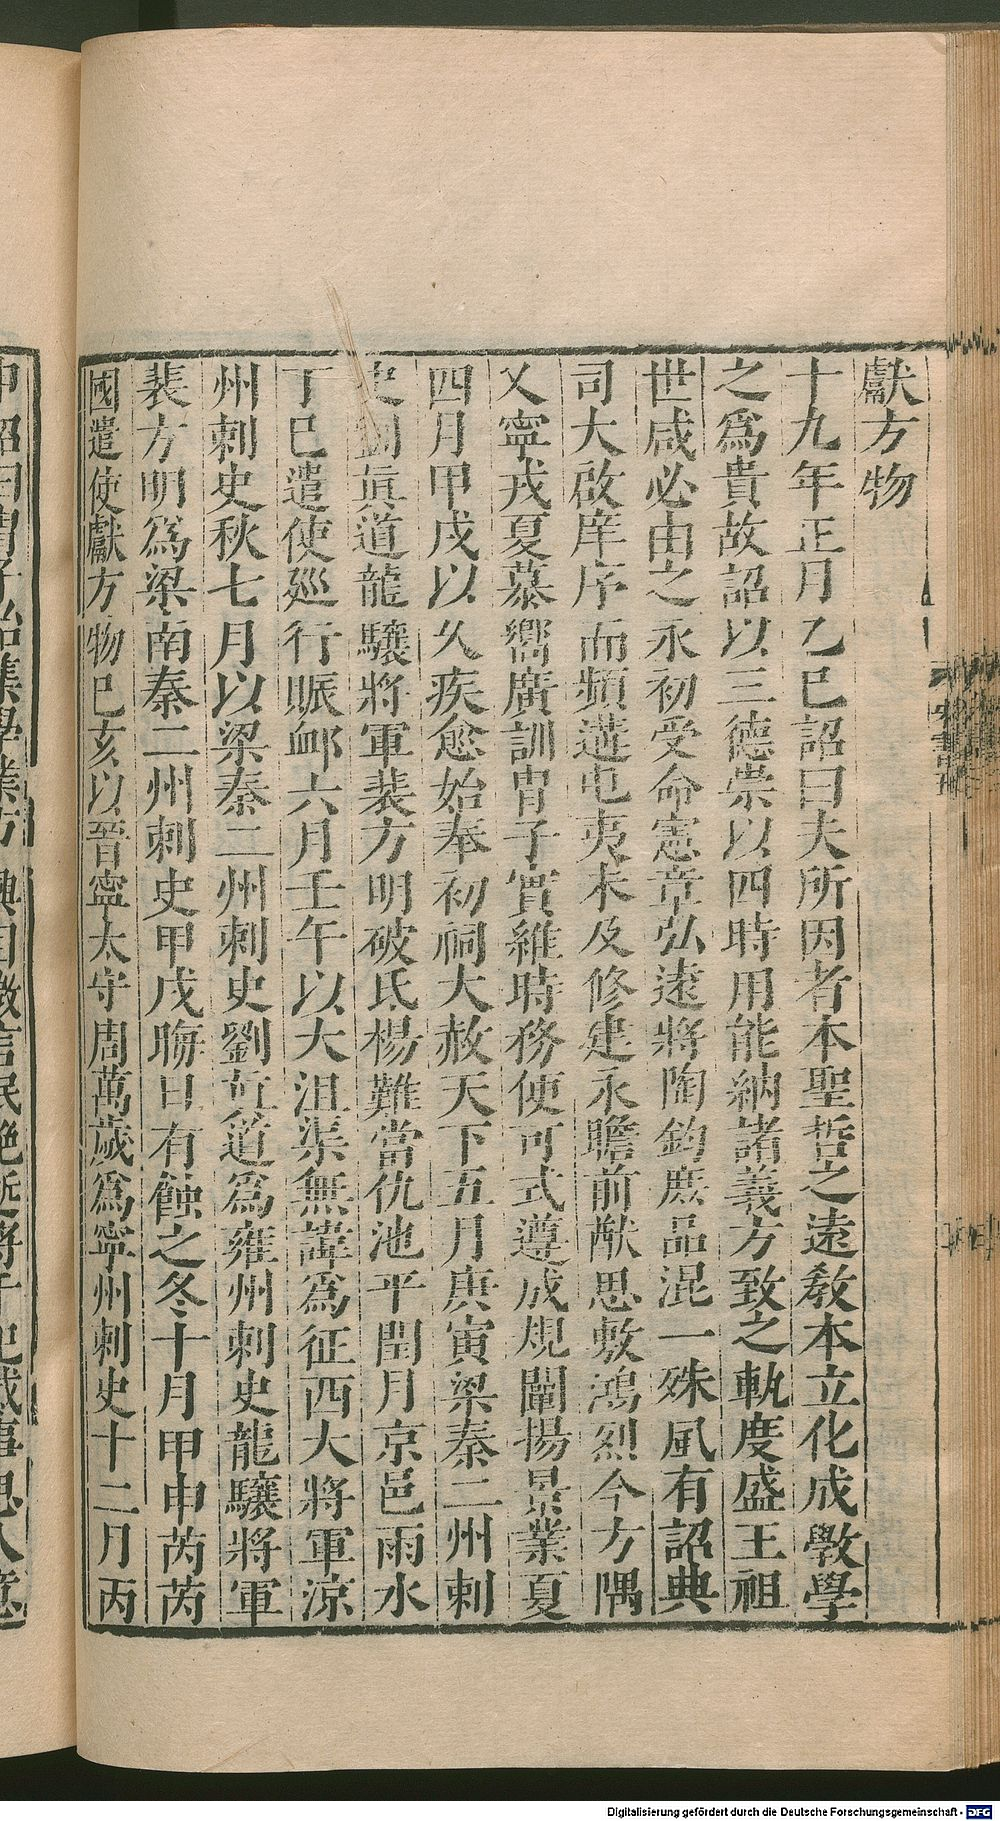 獻方物
十九年正月乙巳詔曰夫所因者本聖哲之遠教本立化成斅學
之爲貴故詔以三德崇以四時用能納諸義方致之軌度盛王祖
世咸必由之永初受命憲章弘遠將陶鈞庶品混一殊風有詔典
司大啟庠序而頻遘屯夷未及修建永瞻前猷思敷鴻烈今方隅
乂寧戎夏慕嚮廣訓胄子實維時務便可式遵成規闡揚景業夏
四月甲戌以久疾愈始奉初祠大赦天下五月庚寅梁秦二州刺
史劉眞道龍驤將軍裴方明破氐楊難當仇池平閏月京邑雨水
丁巳遣使廵行賑䘏六月壬午以大沮渠無諱爲征西大將軍涼
州刺史秋七月以梁秦二州刺史劉眞道爲雍州刺史龍驤將軍
裴方明爲梁南秦二州刺史甲戌晦日有蝕之冬十月甲申芮芮
國遣使獻方物巳亥以晉寧太守周萬歲爲寧州刺史十二月丙
Digitalisierung gefördert durch die Deutsche Forschungsgemeinschaft - DFG